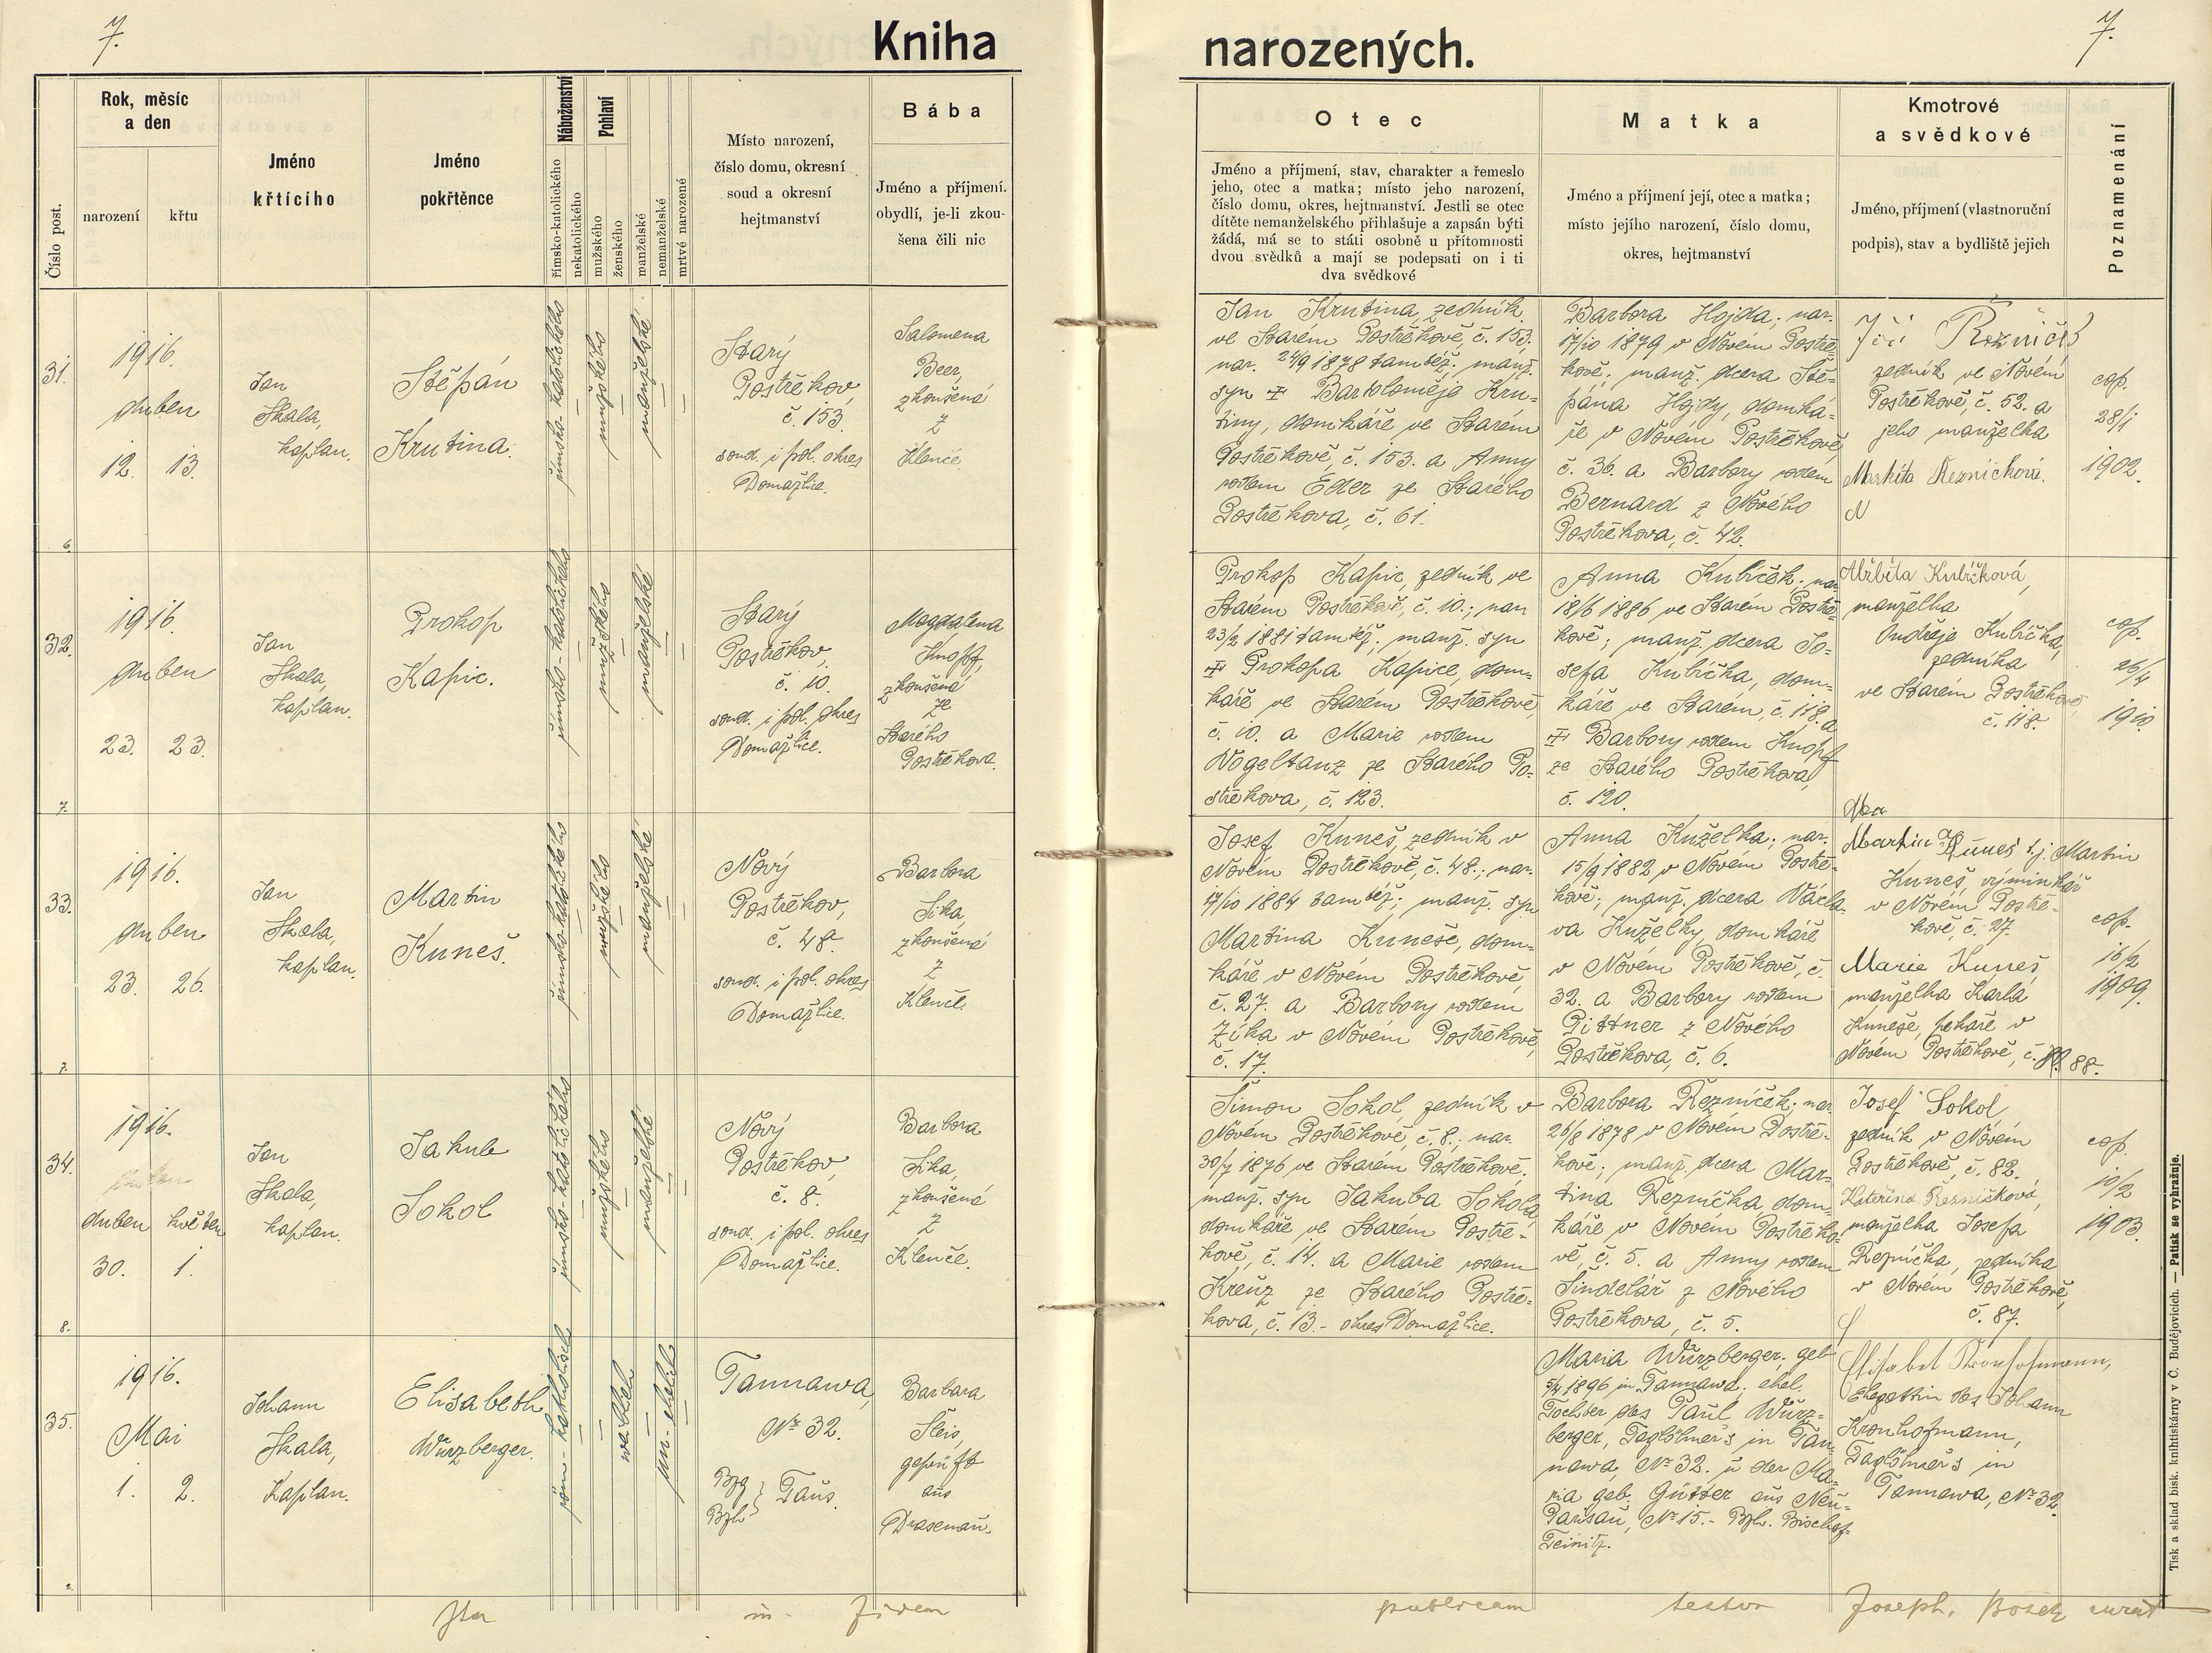 7.
Kniha
narozených.
7.
Číslo post.
Rok, měsíc
a den
narození
křtu
Jméno
křtícího
Jméno
pokřtěnce
Náboženství
římsko-katolického
nekatolického
Pohlaví
mužského
ženského
manželské
nemanželské
mrtvé narozené
Místo narození,
číslo domu, okresní
soud a okresní
hejtmanství
Bába
Jméno a příjmení.
obydlí, je-li zkou-
šena čili nic
Otec
Jméno a příjmení, stav, charakter a řemeslo
jeho, otec a matka; místo jeho narození,
číslo domu, okres, hejtmanství. Jestli se otec
dítěte nemanželského přihlašuje a zapsán býti
žádá, má se to státi osobně u přítomnosti
dvou svědků a mají se podepsati on i ti
dva svědkové
Matka
Jméno a příjmení její, otec a matka;
místo jejího narození, číslo domu,
okres, hejtmanství
Kmotrové
a svědkové
Jméno, příjmení (vlastnoruční
podpis), stav a bydliště jejich
Poznamenání
31.
1916.
duben
12. 13.
6.
Jan
Skala,
kaplan.
Štěpán
Krutina.
římsko-katolického
mužského
manželské
Starý
Postřekov,
č. 153.
soud. i pol. okres
Domažlice.
Salomena
Beer,
zkoušená
z
Klenče.
Jan Krutina, zedník
ve Starém Postřekově, č. 153.
nar. 24/9 1878 tamtéž; manž.
syn † Bartoloměje Kru-
tiny, domkáře ve Starém
Postřekově, č. 153. a Anny
rodem Eder ze Starého
Postřekova, č. 61.
Barbora Hojda; nar.
17/10 1879 v Novém Postře-
kově; manž. dcera Ště-
pána Hojdy, domká-
ře v Novém Postřekově
č. 36. a Barbory rodem
Bernard z Nového
Postřekova, č. 42.
Jiří Řezníček
zedník ve Novém
Postřekově, č. 52. a
jeho manželka
Markita Řezníčková.
cop.
28/1
1902.
32.
1916.
duben
23. 23.
7.
Jan
Skala,
kaplan.
Prokop
Kapic.
římsko-katolického
mužského
manželské
Starý
Postřekov,
č. 10.
soud. i pol. okres
Domažlice.
Magdalena
Knopf,
zkoušená
ze
Starého
Postřekova.
Prokop Kapic, zedník ve
Starém Postřekově, č. 10.; nar.
23/2 1881 tamtéž; manž. syn
† Prokopa Kapice, dom-
káře ve Starém Postřekově,
č. 10. a Marie rodem
Vogeltanz ze Starého Po-
střekova, č. 123.
Anna Kubíček; nar.
18/6 1886 ve Starém Postře-
kově; manž. dcera Jo-
sefa Kubíčka, dom-
káře ve Starém, č. 118. a
† Barbory rodem Knopf
ze Starého Postřekova,
č. 120.
Alžbíta Kubíčková,
manželka
Ondřeje Kubíčka,
zedníka
ve Starém Postřekově
č. 118.
cop.
26/4
1910.
33.
1916.
duben
23. 26.
7.
Jan
Skala,
kaplan.
Martin
Kuneš.
římsko-katolického
mužského
manželské
Nový
Postřekov,
č. 48.
soud. i pol. okres
Domažlice.
Barbora
Sika
zkoušená
z
Klenče.
Josef Kuneš, zedník v
Novém Postřekově, č. 48.; nar.
17/10 1884 tamtéž; manž. syn
Martina Kuneše, dom-
káře v Novém Postřekově,
č. 27. a Barbory rodem
Zíka v Novém Postřekově,
č. 17.
Anna Kuželka; nar.
15/9 1882, v Novém Postře-
kově; manž. dcera Václa-
va Kuželky, domkáře
v Novém Postřekově, č.
32. a Barbory rodem
Pittner z Nového
Postřekova, č. 6.
Martin Kuneš tj. Martin
Kuneš, výminkář
v Novém Postře-
kově, č. 27.
Marie Kuneš,
manželka Karla
Kuneše, pekaře v
Novém Postřekově, č. 88.
cop.
16/2
1909.
34.
1916.
duben květen
30. 1.
8.
Jan
Skala,
kaplan.
Jakub
Sokol
římsko-katolického
mužského
manželské
Nový
Postřekov,
č. 8.
soud. i pol. okres
Domažlice.
Barbora
Sika,
zkoušená
z
Klenče.
Šimon Sokol, zedník v
Novém Postřekově, č. 8.; nar.
30/7 1876 ve Starém Postřekově;
manž. syn Jakuba Sokola,
domkáře ve Starém Postře-
kově, č. 14. a Marie rodem
Kreuz ze Starého Postře-
kova, č. 13. - okres Domažlice.
Barbora Řezníček; nar.
26/8 1878 v Novém Postře-
kově; manž. dcera Mar-
tina Řezníčka, dom-
káře v Novém Postřeko-
vě, č. 5. a Anny rodem
Šindelář z Nového
Postřekova, č. 5.
Josef Sokol
zedník v Novém
Postřekově, č. 82.
Kateřina Řezníčková,
manželka Josefa
Řezníčka, zedníka
v Novém Postřekově,
č. 87.
cop.
10/2
1903.
35.
1916.
Mai
1. 2.
2.
Johann
Skala,
Kaplan.
Elisabeth
Würzberger.
röm-katholisch
weiblich
un-ehelich
Tannawa,
Nr 32.
Bzg
Bzh
Taus.
Barbara
Sleis,
geprüft
aus
Drasenau.
Maria Würzberger; geb.
5/4 1896 in Tannawa; ehel.
Tochter des Paul Würz-
berger, Taglöhners in Tan-
nawa, Nr 32. u der Ma-
ria geb. Gütter aus Neu-
Parisau, Nr 15. - Bzh. Bischof-
Teinitz.
Elisabet Kronhofmann,
Ehegattin des Johann
Kronhofmann,
Taglöhners in
Tannawa, Nr 32.
Ita in fidem publicam testor Joseph.
Tisk a sklad bisk. knihtiskárny v Č. Budějovicích. — Patisk se vyhražuje.